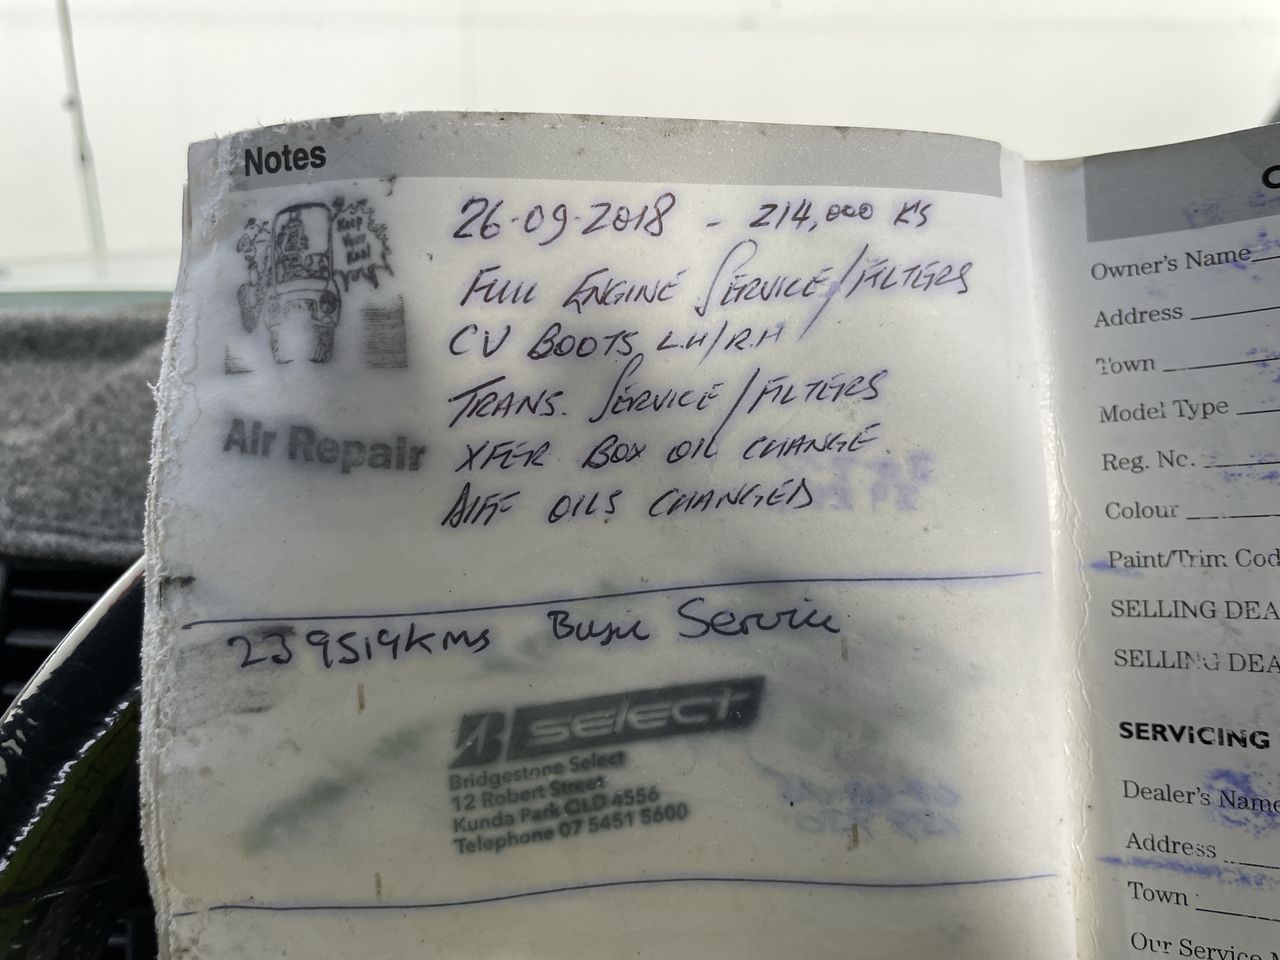 Notes
Keep
Your
Kool
Air Repair
26-09-2018 - 214,000 K's
FULL ENGINE SERVICE/FILTERS
CV BOOTS L.H/R.H
TRANS. SERVICE/FILTERS
XFER BOX OIL CHANGE.
DIFF OILS CHANGED
239519kms Basic Service
B SELECT
Bridgestone Select
12 Robert Street
Kunda Park QLD 4556
Telephone 07 5451 5600
Owner's Name
Address
Town
Model Type
Reg. No.
Colour
Paint/Trim Cod
SELLING DEA
SELLING DEA
SERVICING
Dealer's Name
Address
Town
Our Service